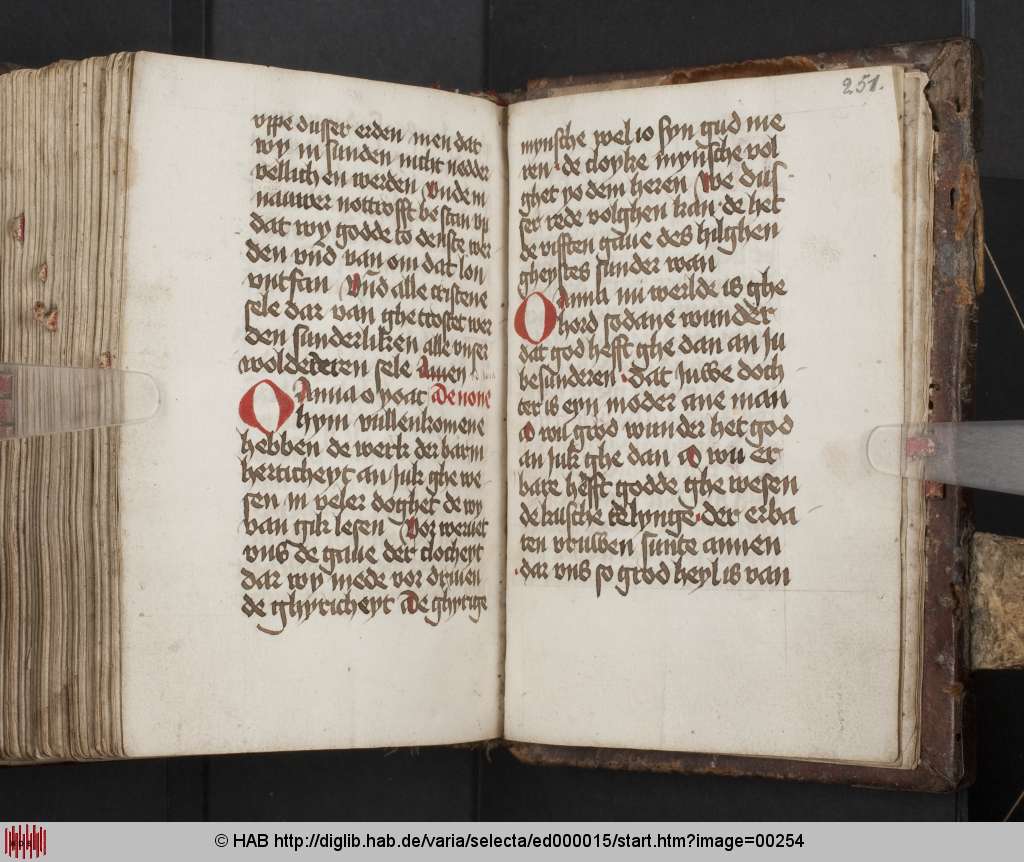 vppe dusser erden men dat
wy in sunden nicht nedder
vellich en werden Unde in
nauwer nottrofft bestan vp
dat wy godde to denste wer
den vnd van om dat lon
vntfan Und alle cristene
sele dar van ghetrostet wer
den sunderliken alle vnser
woldederen sele Amen
O Anna o ycat Ad nonam
hym vullenkomene
hebben de werk der barm
herticheyt an juk ghe we
sen in veler doghet de wy
van gik lesen Vor weruet
vns de gaue der clocheyt
dar wy mede vor driuen
de ghyricheyt De ghyrige
251.
mynsche wel io syn gud me
ren de cloyke mynsche vol
ghet yo dem heren We dus
ser rede volghen kan de het
de vifften gaue des hilghen
gheystes sunder wan
O Anna in werlde is ghe
hord sodane wunder
dat god hefft ghe dan an ju
besunderen Dat juwe doch
ter is eyn moder ane man
O wu grod wunder het god
an juk ghe dan O wu er
bare hefft godde ghe wesen
de kusche telynge der erba
ren vruwen sunte annen
dar vns so grod heyl is van
© HAB http://diglib.hab.de/varia/selecta/ed000015/start.htm?image=00254